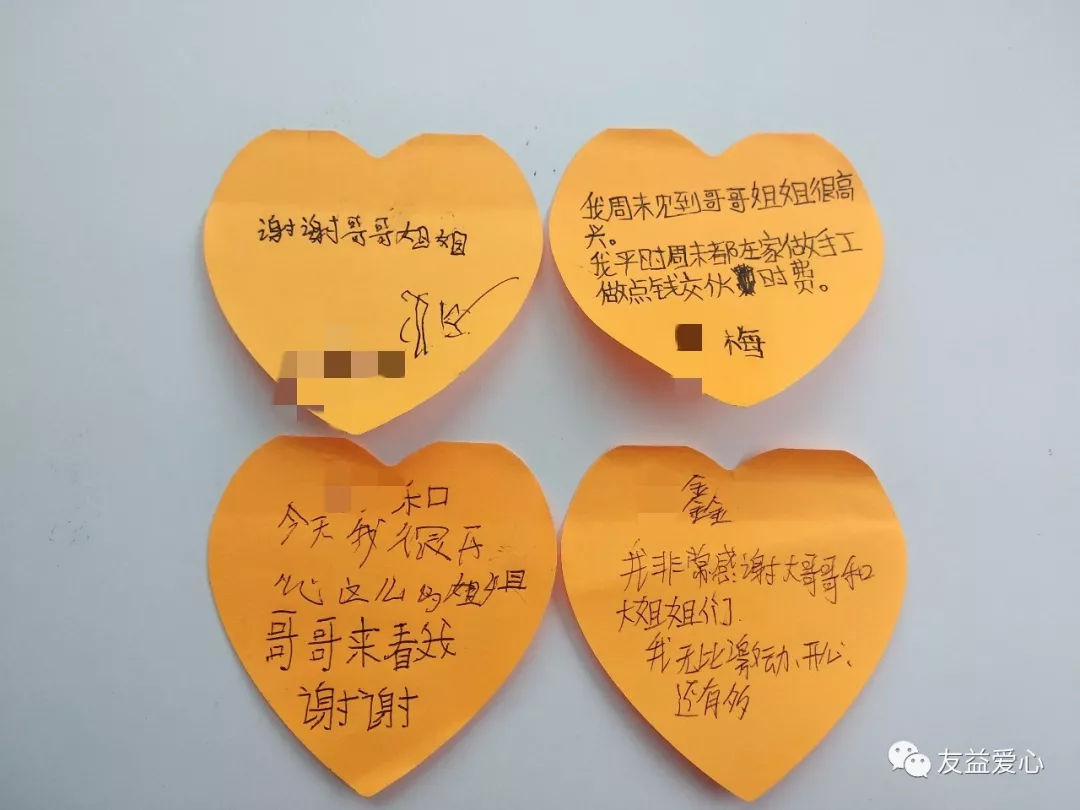 谢谢哥哥姐姐
我周末见到哥哥姐姐很高
兴。
我平时周末都在家做手工
做点钱交伙时费。
梅
和
今天我很开
心这么的姐姐
哥哥来春我
谢谢
鑫
我非常感谢大哥哥和
大姐姐们
我无比激动、开心、
还有多
友益爱心